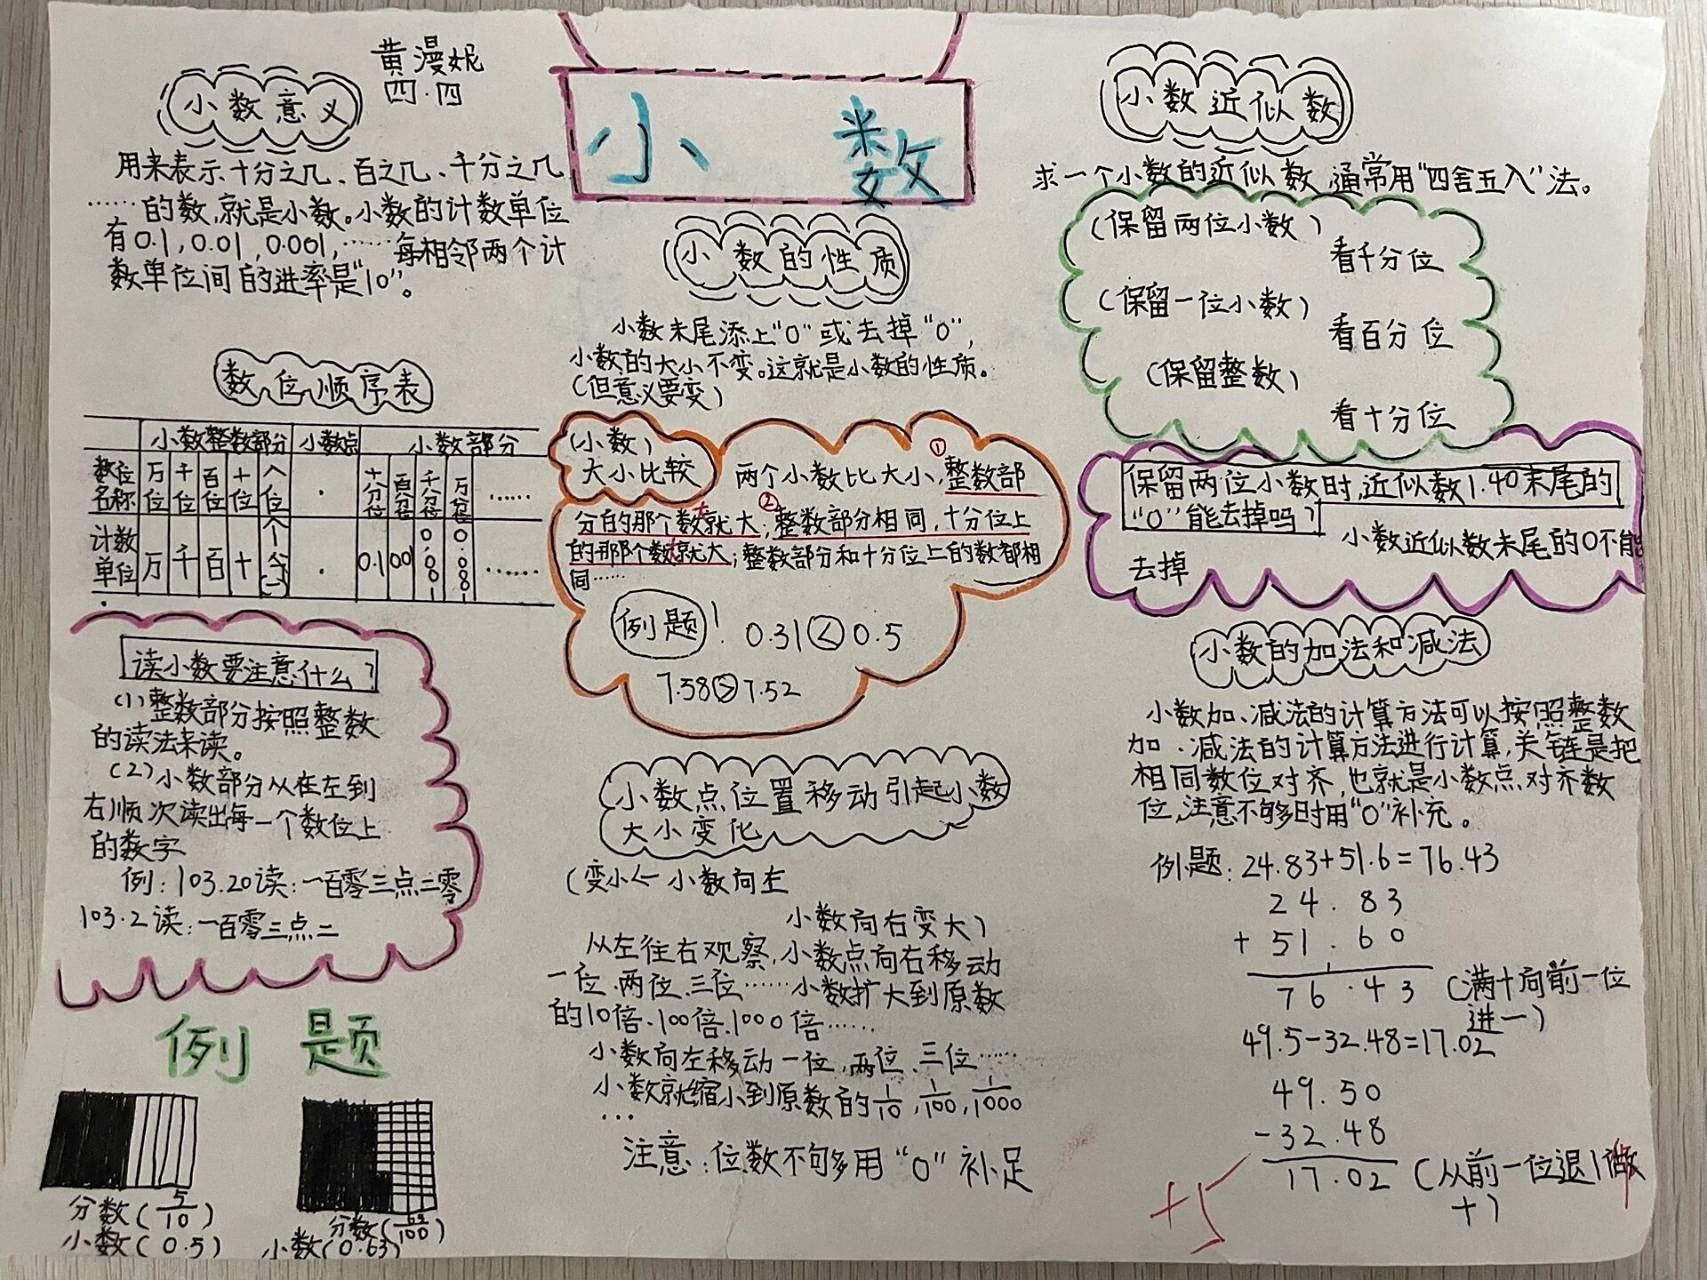 黄漫妮
四.四
小数
小数意义
用来表示十分之几、百之几、千分之几
……的数,就是小数。小数的计数单位
有0.1,0.01,0.001,……每相邻两个计
数单位间的进率是“10”。
数位顺序表
小数整数部分 小数点 小数部分
数位名称 万位 千位 百位 十位 个位 . 十分位 百分位 千分位 万分位 ……
计数单位 万 千 百 十 个(一) . 0.1 0.01 0.001 0.0001 ……
读小数要注意什么?
(1)整数部分按照整数
的读法来读。
(2)小数部分从在左到
右顺次读出每一个数位上
的数字
例:103.20读:一百零三点二零
103.2读:一百零三点二
例题
分数(5/10)
小数(0.5)
分数(63/100)
小数(0.63)
小数的性质
小数末尾添上“0”或去掉“0”,
小数的大小不变。这就是小数的性质。
(但意义要变)
(小数)
大小比较
两个小数比大小,①整数部
分白的那个数就大;②整数部分相同,十分位上
大
的那个数就大;整数部分和十分位上的数都相
大
同……
例题! 0.31<0.5
7.58>7.52
小数点位置移动引起小数
大小变化
(变小← 小数向左
小数向右变大)
从左往右观察,小数点向右移动
一位、两位、三位……小数扩大到原数
的10倍、100倍、1000倍……
小数向左移动一位,两位、三位……
小数就缩小到原数的1/10,1/100,1/1000
...
注意:位数不够多用“0”补足
小数近似数
求一个小数的近似数,通常用“四舍五入”法。
(保留两位小数)
看千分位
(保留一位小数)
看百分位
(保留整数)
看十分位
保留两位小数时,近似数1.40末尾的
“0”能去掉吗?
小数近似数末尾的0不能
去掉
小数的加法和减法
小数加、减法的计算方法可以按照整数
加、减法的计算方法进行计算,关键是把
相同数位对齐,也就是小数点对齐数
位,注意不够时用“0”补充。
例题:24.83+51.6=76.43
24.83
+51.60
1
76.43 (满十向前一位
进一)
49.5-32.48=17.02
49.50
-32.48
17.02 (从前一位退1做
十)
+5